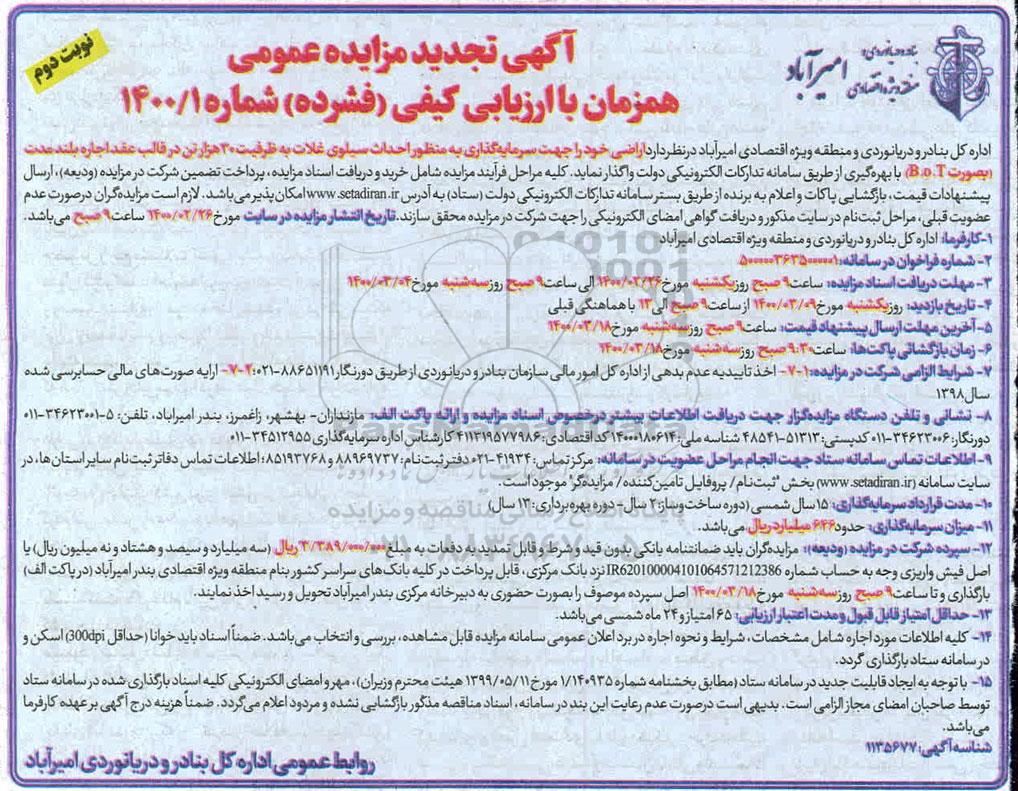 بنادر و دریانوردی و
منطقه ویژه اقتصادی امیرآباد
نوبت دوم
آگهی تجدید مزایده عمومی
همزمان با ارزیابی کیفی (فشرده) شماره ۱۴۰۰/۱
اداره کل بنادر و دریانوردی و منطقه ویژه اقتصادی امیرآباد درنظر دارد اراضی خود را جهت سرمایه‌گذاری به منظور احداث سیلوی غلات به ظرفیت ۳۰هزار تن در قالب عقد اجاره بلندمدت
(بصورت B.o.T) با بهره‌گیری از طریق سامانه تدارکات الکترونیکی دولت واگذار نماید. کلیه مراحل فرآیند مزایده شامل خرید و دریافت اسناد مزایده، پرداخت تضمین شرکت در مزایده (ودیعه)، ارسال
پیشنهادات قیمت، بازگشایی پاکات و اعلام به برنده از طریق بستر سامانه تدارکات الکترونیکی دولت (ستاد) به آدرس www.setadiran.ir امکان پذیر می‌باشد. لازم است مزایده‌گران درصورت عدم
عضویت قبلی، مراحل ثبت‌نام در سایت مذکور و دریافت گواهی امضای الکترونیکی را جهت شرکت در مزایده محقق سازند. تاریخ انتشار مزایده در سایت مورخ ۱۴۰۰/۰۲/۲۶ ساعت ۹ صبح می‌باشد.
۱-کارفرما: اداره کل بنادر و دریانوردی و منطقه ویژه اقتصادی امیرآباد
۲- شماره فراخوان در سامانه: ۵۰۰۰۰۰۳۶۳۵۰۰۰۰۰۱
۳- مهلت دریافت اسناد مزایده: ساعت ۹ صبح روز یکشنبه مورخ ۱۴۰۰/۰۲/۲۶ الی ساعت ۹ صبح روز سه‌شنبه مورخ ۱۴۰۰/۰۳/۰۴
۴- تاریخ بازدید: روز یکشنبه مورخ ۱۴۰۰/۰۳/۰۹ از ساعت ۹ صبح الی ۱۳ با هماهنگی قبلی
۵- آخرین مهلت ارسال پیشنهاد قیمت: ساعت ۹ صبح روز سه‌شنبه مورخ ۱۴۰۰/۰۳/۱۸
۶- زمان بازگشائی پاکت‌ها: ساعت ۹:۳۰ صبح روز سه‌شنبه مورخ ۱۴۰۰/۰۳/۱۸
۷- شرایط الزامی شرکت در مزایده: ۷-۱- اخذ تاییدیه عدم بدهی از اداره کل امور مالی سازمان بنادر و دریانوردی از طریق دورنگار ۸۸۶۵۱۱۹۱-۰۲۱ ؛ ۷-۲- ارایه صورت‌های مالی حسابرسی شده
سال ۱۳۹۸
۸- نشانی و تلفن دستگاه مزایده‌گزار جهت دریافت اطلاعات بیشتر درخصوص اسناد مزایده و ارائه پاکت الف: مازندازان- بهشهر، زاغمرز، بندر امیراباد، تلفن: ۵-۳۴۶۲۳۰۰۱-۰۱۱
دورنگار: ۳۴۶۲۳۰۰۶-۰۱۱ کدپستی: ۵۱۳۱۳-۴۸۵۴۱ شناسه ملی: ۱۴۰۰۰۱۸۰۶۱۴ کد اقتصادی: ۴۱۱۳۱۹۵۷۷۹۸۶ کارشناس اداره سرمایه‌گذاری ۳۴۵۱۲۹۵۵-۰۱۱
۹- اطلاعات تماس سامانه ستاد جهت انجام مراحل عضویت در سامانه: مرکز تماس: ۴۱۹۳۴-۰۲۱ دفتر ثبت‌نام: ۸۸۹۶۹۷۳۷ و ۸۵۱۹۳۷۶۸؛ اطلاعات تماس دفاتر ثبت‌نام سایر استان‌ها، در
سایت سامانه (www.setadiran.ir) بخش "ثبت‌نام/ پروفایل تامین‌کننده/ مزایده‌گر" موجود است.
۱۰- مدت قرارداد سرمایه‌گذاری: ۱۵ سال شمسی (دوره ساخت‌وساز: ۲ سال- دوره بهره‌برداری: ۱۳ سال)
۱۱- میزان سرمایه‌گذاری: حدود ۶۴۶ میلیارد ریال می‌باشد.
۱۲- سپرده شرکت در مزایده (ودیعه): مزایده‌گران باید ضمانتنامه بانکی بدون قید و شرط و قابل تمدید به دفعات به مبلغ ۳/۳۸۹/۰۰۰/۰۰۰ ریال (سه میلیارد و سیصد و هشتاد و نه میلیون ریال) یا
اصل فیش واریزی وجه به حساب شماره IR620100004101064571212386 نزد بانک مرکزی، قابل پرداخت در کلیه بانک‌های سراسر کشور بنام منطقه ویژه اقتصادی بندر امیرآباد (در پاکت الف)
بارگذاری و تا ساعت ۹ صبح روز سه‌شنبه مورخ ۱۴۰۰/۰۳/۱۸ اصل سپرده موصوف را بصورت حضوری به دبیرخانه مرکزی بندر امیرآباد تحویل و رسید اخذ نمایند.
۱۳- حداقل امتیاز قابل قبول و مدت اعتبار ارزیابی: ۶۵ امتیاز و ۲۴ ماه شمسی می‌باشد.
۱۴- کلیه اطلاعات مورد اجاره شامل مشخصات، شرایط و نحوه اجاره در برد اعلان عمومی سامانه مزایده قابل مشاهده، بررسی و انتخاب می‌باشد. ضمناً اسناد باید خوانا (حداقل 300dpi) اسکن و
در سامانه ستاد بارگذاری گردد.
۱۵- با توجه به ایجاد قابلیت جدید در سامانه ستاد (مطابق بخشنامه شماره ۱/۱۴۰۹۳۵ مورخ ۱۳۹۹/۰۵/۱۱ هیئت محترم وزیران)، مهر و امضای الکترونیکی کلیه اسناد بارگذاری شده در سامانه ستاد
توسط صاحبان امضای مجاز الزامی است. بدیهی است درصورت عدم رعایت این بند در سامانه، اسناد مناقصه مذکور بازگشایی نشده و مردود اعلام می‌گردد. ضمناً هزینه درج آگهی بر عهده کارفرما
می‌باشد.
شناسه آگهی: ۱۱۳۵۶۷۷
روابط عمومی اداره کل بنادر و دریانوردی امیرآباد